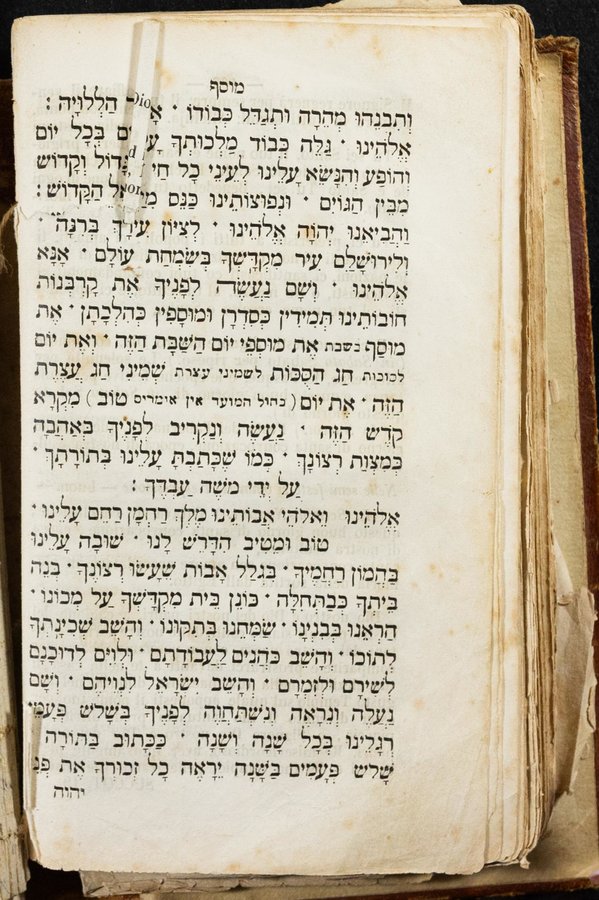 מוסף
וְתִבְנֵהוּ מְהֵרָה וּתְגַדֵּל כְּבוֹדוֹ · הַלְלוּיָהּ :
Dio
אֱלֹהֵינוּ · גַּלֵּה כְּבוֹד מַלְכוּתְךָ בְּכָל יוֹם
וְהוֹפַע וְהִנָּשֵׂא עָלֵינוּ לְעֵינֵי כָל חַי · גָּדוֹל וְקָדוֹשׁ
מִבֵּין הַגּוֹיִם · וּנְפוּצוֹתֵינוּ כַּנֵּס הַקָּדוֹשׁ :
וַהֲבִיאֵנוּ יְהֹוָה אֱלֹהֵינוּ · לְצִיּוֹן עִירָךְ בְּרִנָּה ·
וְלִירוּשָׁלֵם עִיר מִקְדָּשְׁךָ בְּשִׂמְחַת עוֹלָם · אָנָּא
אֱלֹהֵינוּ · וְשָׁם נַעֲשֶׂה לְפָנֶיךָ אֶת קָרְבְּנוֹת
חוֹבוֹתֵינוּ תְּמִידִין כְּסִדְרָן וּמוּסָפִין כְּהִלְכָתָן · אֶת
מוּסַף בשבת אֶת מוּסְפֵי יוֹם הַשַּׁבָּת הַזֶּה · וְאֶת יוֹם
לסוכות חַג הַסֻּכּוֹת לשמיני עצרת שְׁמִינִי חַג עֲצֶרֶת
הַזֶּה · אֶת יוֹם ( בחול המועד אין אומרים טוֹב ) מִקְרָא
קֹדֶשׁ הַזֶּה · נַעֲשֶׂה וְנַקְרִיב לְפָנֶיךָ בְּאַהֲבָה
כְּמִצְוַת רְצוֹנֶךָ · כְּמוֹ שֶׁכָּתַבְתָּ עָלֵינוּ בְּתוֹרָתָךְ ·
עַל יְדֵי מֹשֶׁה עַבְדֶּךָ :
אֱלֹהֵינוּ וֵאלֹהֵי אֲבוֹתֵינוּ מֶלֶךְ רַחְמָן רַחֵם עָלֵינוּ ·
טוֹב וּמֵטִיב הִדָּרֶשׁ לָנוּ · שׁוּבָה עָלֵינוּ
בַּהֲמוֹן רַחֲמֶיךָ · בִּגְלַל אָבוֹת שֶׁעָשׂוּ רְצוֹנֶךָ · בְּנֵה
בֵיתְךָ כְּבַתְּחִלָּה · כּוֹנֵן בֵּית מִקְדָּשְׁךָ עַל מְכוֹנוֹ ·
הַרְאֵנוּ בְּבִנְיָנוֹ · שַׂמְּחֵנוּ בְּתִקּוּנוֹ · וְהָשֵׁב שְׁכִינָתְךָ
לְתוֹכוֹ · וְהָשֵׁב כֹּהֲנִים לַעֲבוֹדָתָם · וּלְוִיִּם לְדוּכָנָם
לְשִׁירָם וּלְזִמְרָם · וְהָשֵׁב יִשְׂרָאֵל לִנְוֵיהֶם · וְשָׁם
נַעֲלֶה וְנֵרָאֶה וְנִשְׁתַּחֲוֶה לְפָנֶיךָ בְּשָׁלֹשׁ פַּעֲמֵי
רְגָלֵינוּ בְּכָל שָׁנָה וְשָׁנָה · כַּכָּתוּב בַּתּוֹרָה
שָׁלֹשׁ פְּעָמִים בַּשָּׁנָה יֵרָאֶה כָל זְכוּרְךָ אֶת פְּנֵי
יהוה